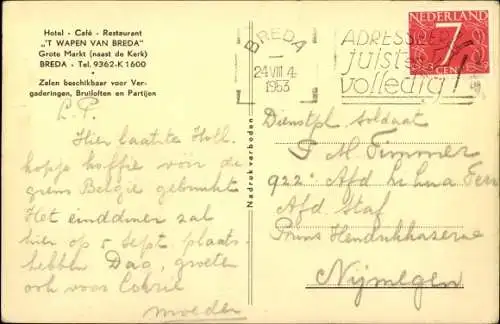 Hotel - Café - Restaurant
„'T WAPEN VAN BREDA”
Grote Markt (naast de Kerk)
BREDA - Tel. 9362-K 1600
Zalen beschikbaar voor Vergaderingen, Bruiloften en Partijen
L.P.
Hier laatste Holl.
kopje koffie vóór de
grens België gebruikt
Het einddiner zal
hier op 5 Sept. plaats
hebben Dag, groeten
ook voor
moeder
Nadruk verboden
BREDA
24 VIII 4
1953
ADRESSEER
juist en
volledig!
NEDERLAND
7
CENT
Dienstpl. Soldaat
Timmer
922e Afd
Afd Staf
Prins Hendrikkazerne
Nijmegen